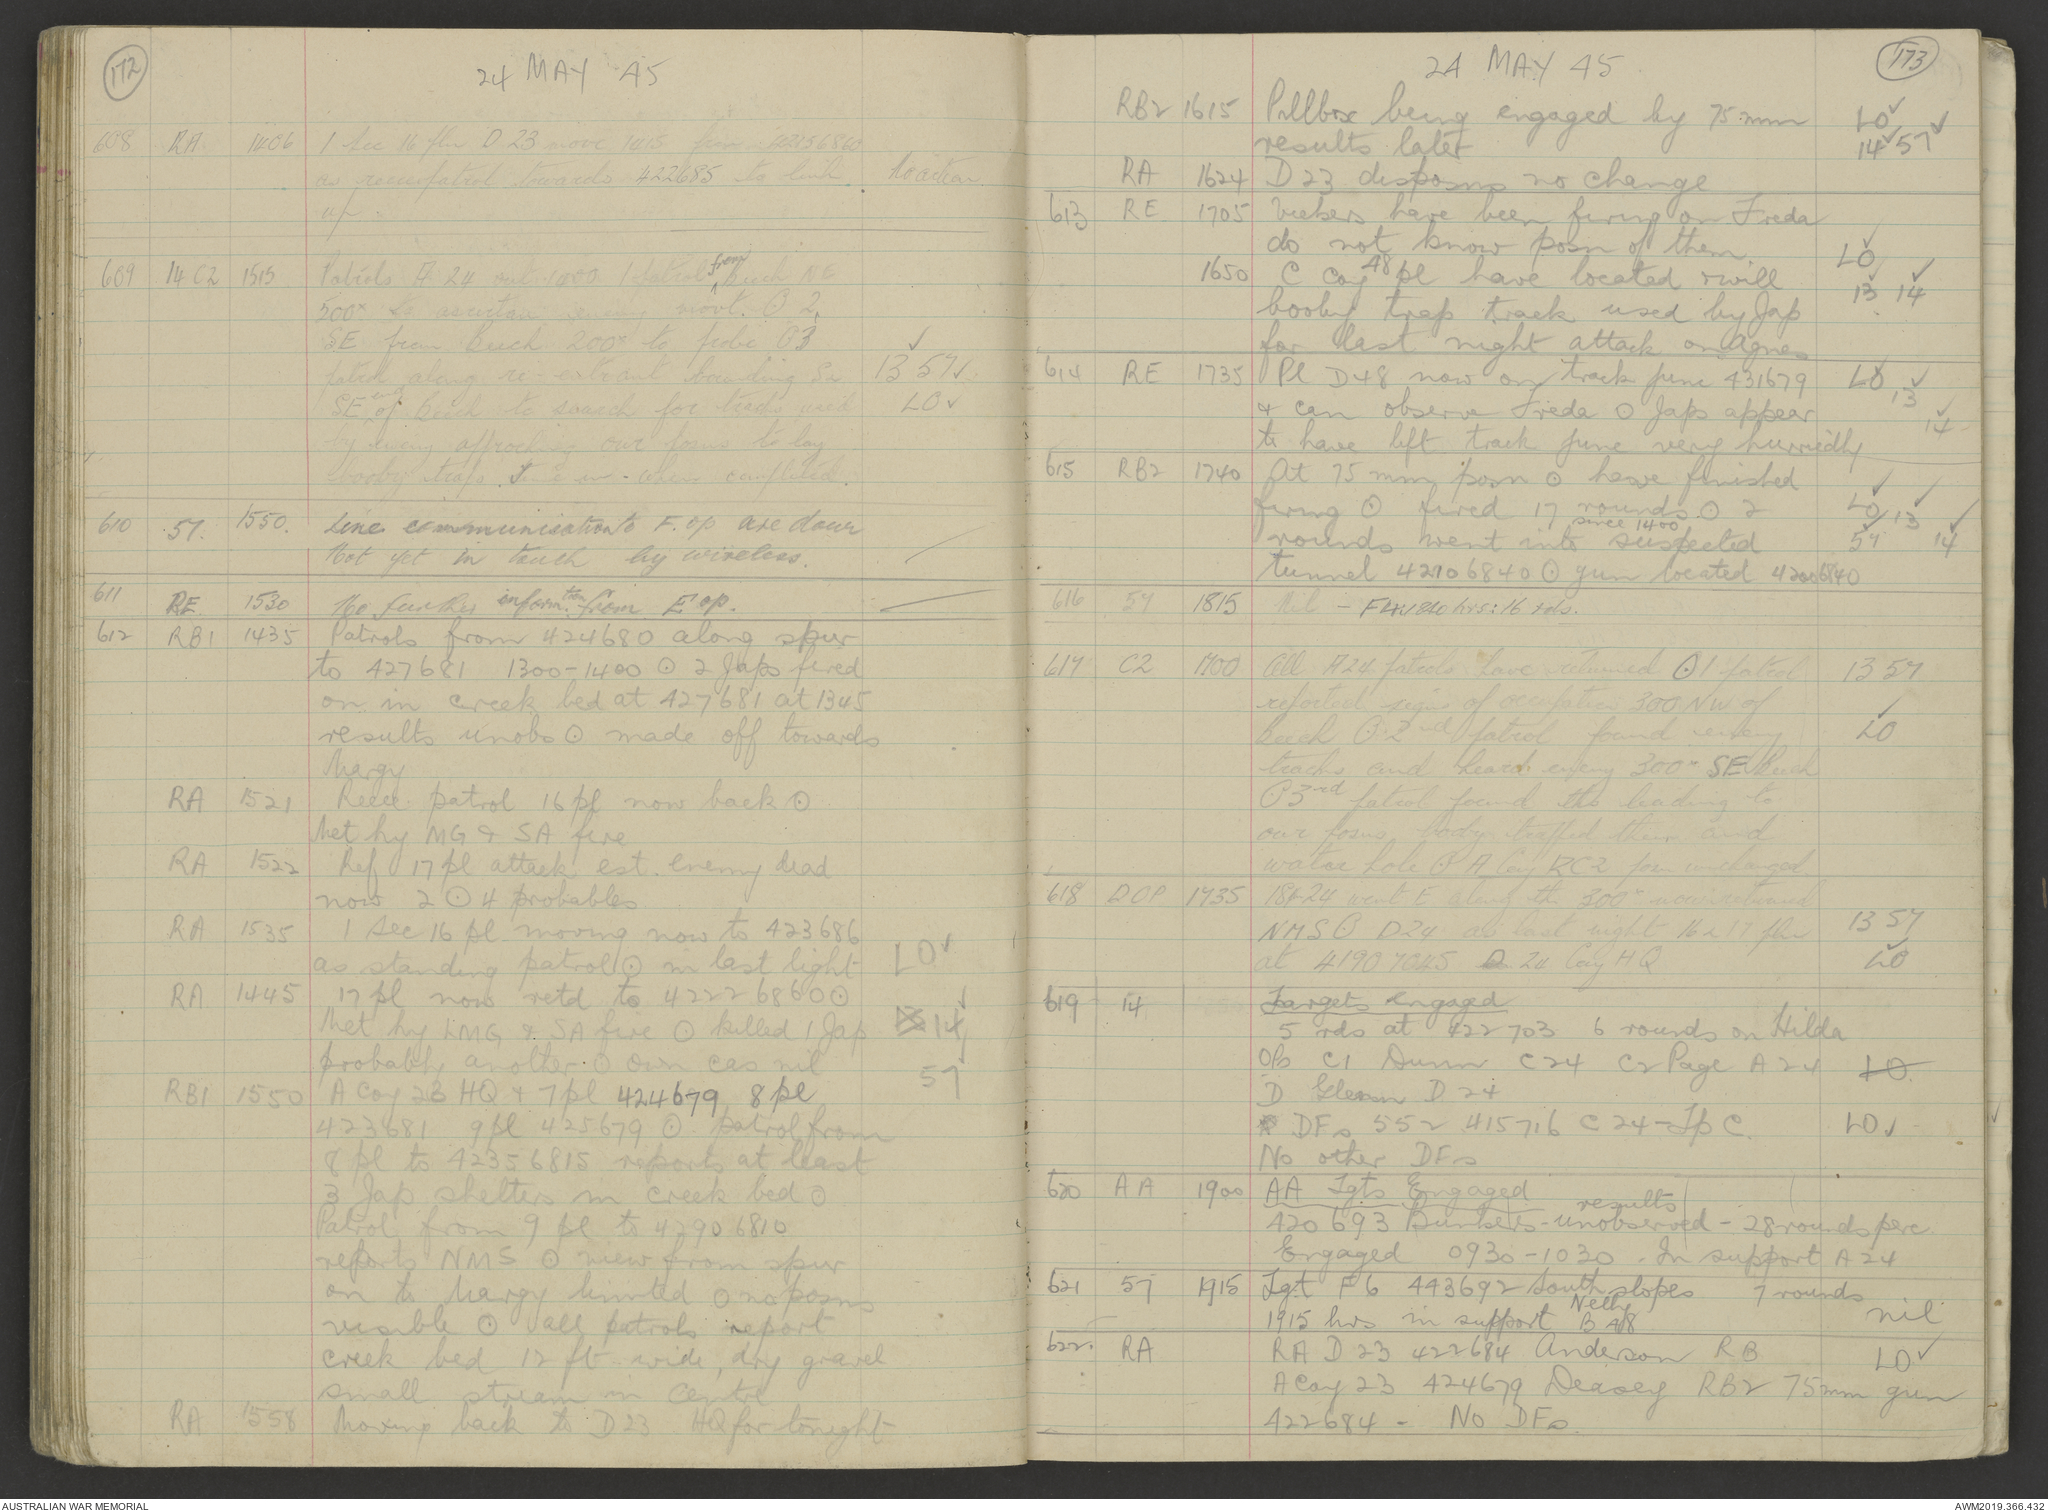 172
24 MAY 45
608 RA 1406 1 Sec 16 pln D 23 move 1415 from 42256860
as reccepatrol towards 422685 to link No action
up.
609 14 C2 1515 Patrols A 24 out 1400 1 patrol from Beech NE
500x to ascertain enemy movt. O 2
SE from Beech 200x to probe O3
patrol along re-entrant 13 57
SE of Beech to search for tracks used LO
by enemy approching our posns to lay
booby traps. when completed.
610 57. 1550. Line communication to F. op are down
Not yet in touch by wireless.
611 RE 1530 No further information from E op.
612 RB1 1435 Patrols from 424680 along spur
to 427681 1300-1400 ⊙ 2 Japs fired
on in creek bed at 427681 at 1345
results unobs ⊙ made off towards
Margy
RA 1521 Recce patrol 16 pl now back ⊙
Met by MG & SA fire
RA 1522 Ref 17 pl attack est. enemy dead
now 2 ⊙ 4 probables
RA 1535 1 sec 16 pl moving now to 423686
as standing patrol ⊙ in last light LO
RA 1445 17 pl now retd to 42226860 ⊙
Met by LMG & SA fire ⊙ killed 1 Jap 14
probably another ⊙ own cas nil 57
RB1 1550 A Coy 23 HQ + 7 pl 424679 8 pl
423681 9 pl 425679 ⊙ patrol from
8 pl to 42356815 reports at least
3 Jap shelters in creek bed ⊙
Patrol from 9 pl to 42906810
reports NMS ⊙ view from spur
on to Margy limited ⊙ no posns
visible ⊙ all patrols report
creek bed 12 ft wide, dry gravel
small stream in centre
RA 1558 Moving back to D 23 HQ for tonight
173
24 MAY 45
RB2 1615 Pillbox being engaged by 75 mm LO
results later 14 57
RA 1624 D 23 disposns no change
613 RE 1705 Vickers have been firing on Freda
do not know posn of them. LO
1650 C Coy 48 pl have located & will 13 14
booby trap track used by Jap
for last night attack on Agnes
614 RE 1735 Pl D48 now on track June 431679 LO 13
& can observe Freda ⊙ Japs appear 14
to have left track June very hurriedly
615 RB2 1740 At 75 mm posn ⊙ have finished
firing ⊙ fired 17 rounds ⊙ 2 LO 13
rounds since 1400 went into suspected 57 14
tunnel 42106840 ⊙ gun located 42006840
616 57 1815 Nil - F4 1840 hrs: 16 rds.
617 C2 1700 All A24 patrols have returned ⊙ 1 patrol 13 57
reported signs of occupation 300 NW of
Beech ⊙ 2nd patrol found enemy LO
tracks and heard enemy 300x SE Beech
⊙ 3rd patrol found tks leading to
our posns, booby trapped them and
water hole ⊙ A Coy & C2 posn unchanged
618 DOP 1735 18 24 went E along tk 300x now returned
NMS ⊙ D24 as last night 16 & 17 pln 13 57
at 41907045 24 Coy HQ LO
619 14 Targets engaged
5 rds at 422703 6 rounds on Hilda
Obs C1 Dunn C24 C2 Page A 24 LO
D Gleeson D 24
DFs 552 415716 C 24 - Tp C. LO
No other DFs
620 AA 1900 AA Tgts Engaged
420693 Bunkers - results unobserved - 28 rounds perc.
Engaged 0930 - 1030. In support A 24
621 57 1915 Tgt F6 443692 South slopes Nelly 7 rounds
1915 hrs in support B 48 nil
622. RA RA D 23 422684 Anderson RB LO
A Coy 23 424679 Deasey RB2 75 mm gun
422684 - No DFs.
AUSTRALIAN WAR MEMORIAL
AWM2019.366.432